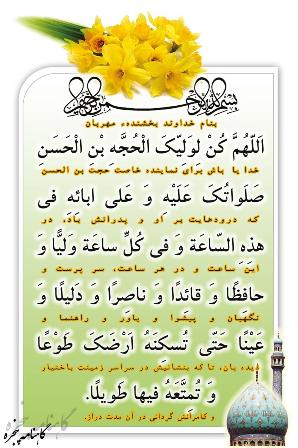 بسم الله الرحمن الرحیم
بنام خداوند بخشنده مهربان
اَللّهُمَّ کُنْ لِوَلِیِّکَ الْحُجَّهِ بْنِ الْحَسَنِ
خدا یا باش برای نماینده خاصت حجت بن الحسن
صَلَواتُکَ عَلَیْهِ وَ عَلی ابائِهِ فی
که درودهایت بر او و پدرانش باد، در
هذِهِ السّاعَةِ وَ فی کُلِّ ساعَةٍ وَلِیًّا وَ
این ساعت و در هر ساعت، سر پرست و
حافِظًا وَ قائِدًا وَ ناصِرًا وَ دَلیلًا وَ
نگهبان و پیشوا و یاور و راهنما و
عَیْنًا حَتّی تُسکِنَهُ اَرْضَکَ طَوْعًا
دیده بان، تا که بنشانیش در سراسر زمینت باختیار
وَ تُمَتِّعَهُ فیها طَویلًا.
و کامرانش گردانی در آن مدت دراز.